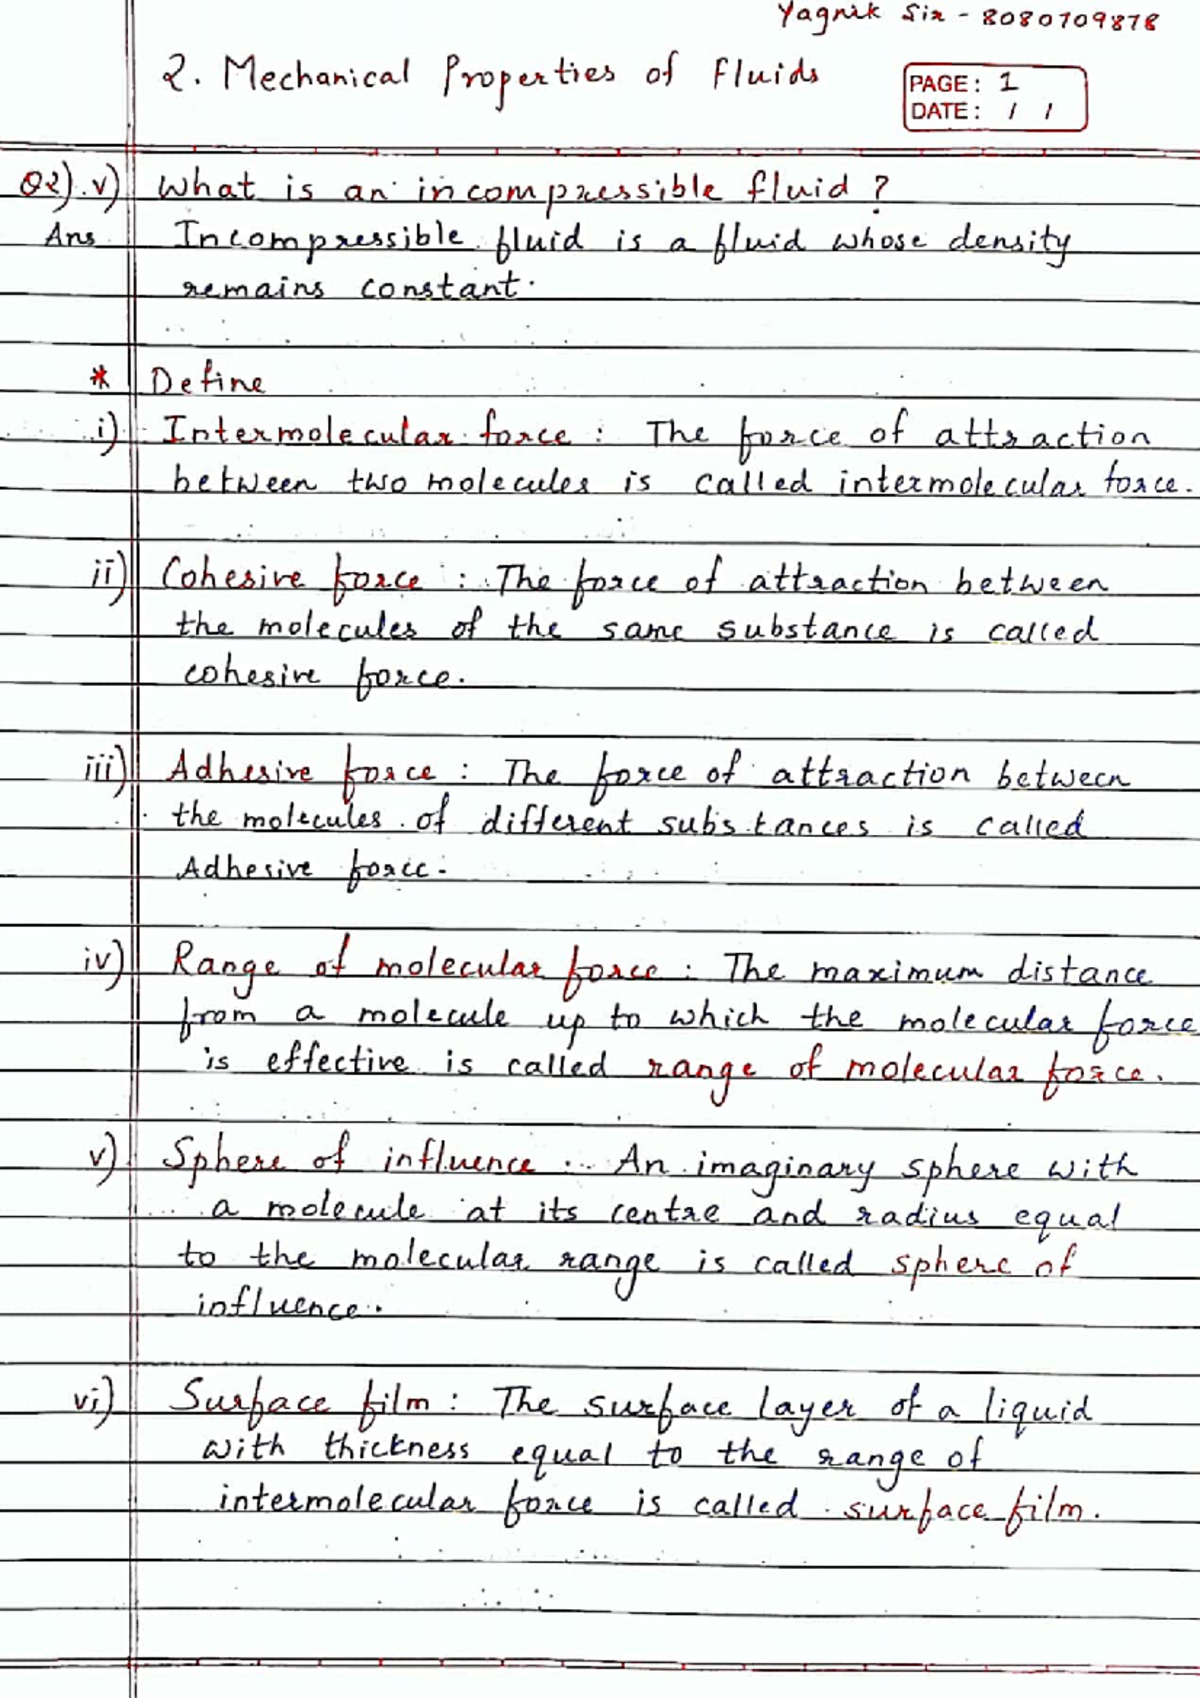 Yagnik Sir - 8080709878
2. Mechanical Properties of Fluids
PAGE: 1
DATE: / /
Q2). v) What is an incompressible fluid ?
Ans Incompressible fluid is a fluid whose density
remains constant.
* Define
i) Intermolecular force : The force of attraction
between two molecules is called intermolecular force.
ii) Cohesive force : The force of attraction between
the molecules of the same substance is called
cohesive force.
iii) Adhesive force : The force of attraction between
the molecules of different substances is called
Adhesive force.
iv) Range of molecular force : The maximum distance
from a molecule up to which the molecular force
is effective is called range of molecular force.
v) Sphere of influence : An imaginary sphere with
a molecule at its centre and radius equal
to the molecular range is called sphere of
influence.
vi) Surface film : The surface layer of a liquid
with thickness equal to the range of
intermolecular force is called surface film.